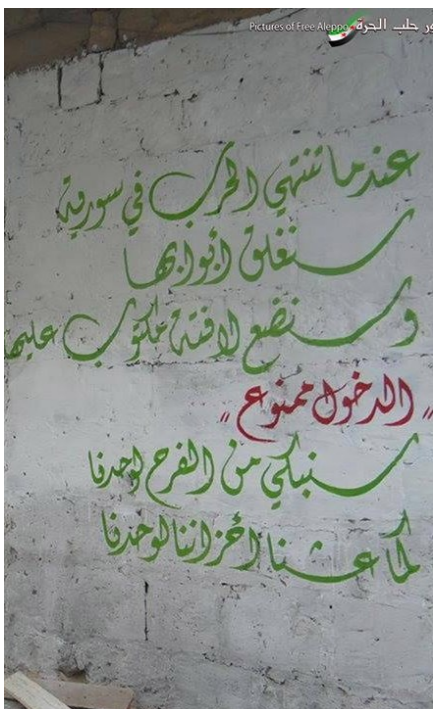 Pictures of Free Aleppo ور حلب الحرة
عندما تنتهي الحرب في سورية
سنغلق أبوابها
وسنضع لافتة مكتوب عليها
"الدخول ممنوع"
سنبكي من الفرح لوحدنا
كما عشنا أحزاننا لوحدنا